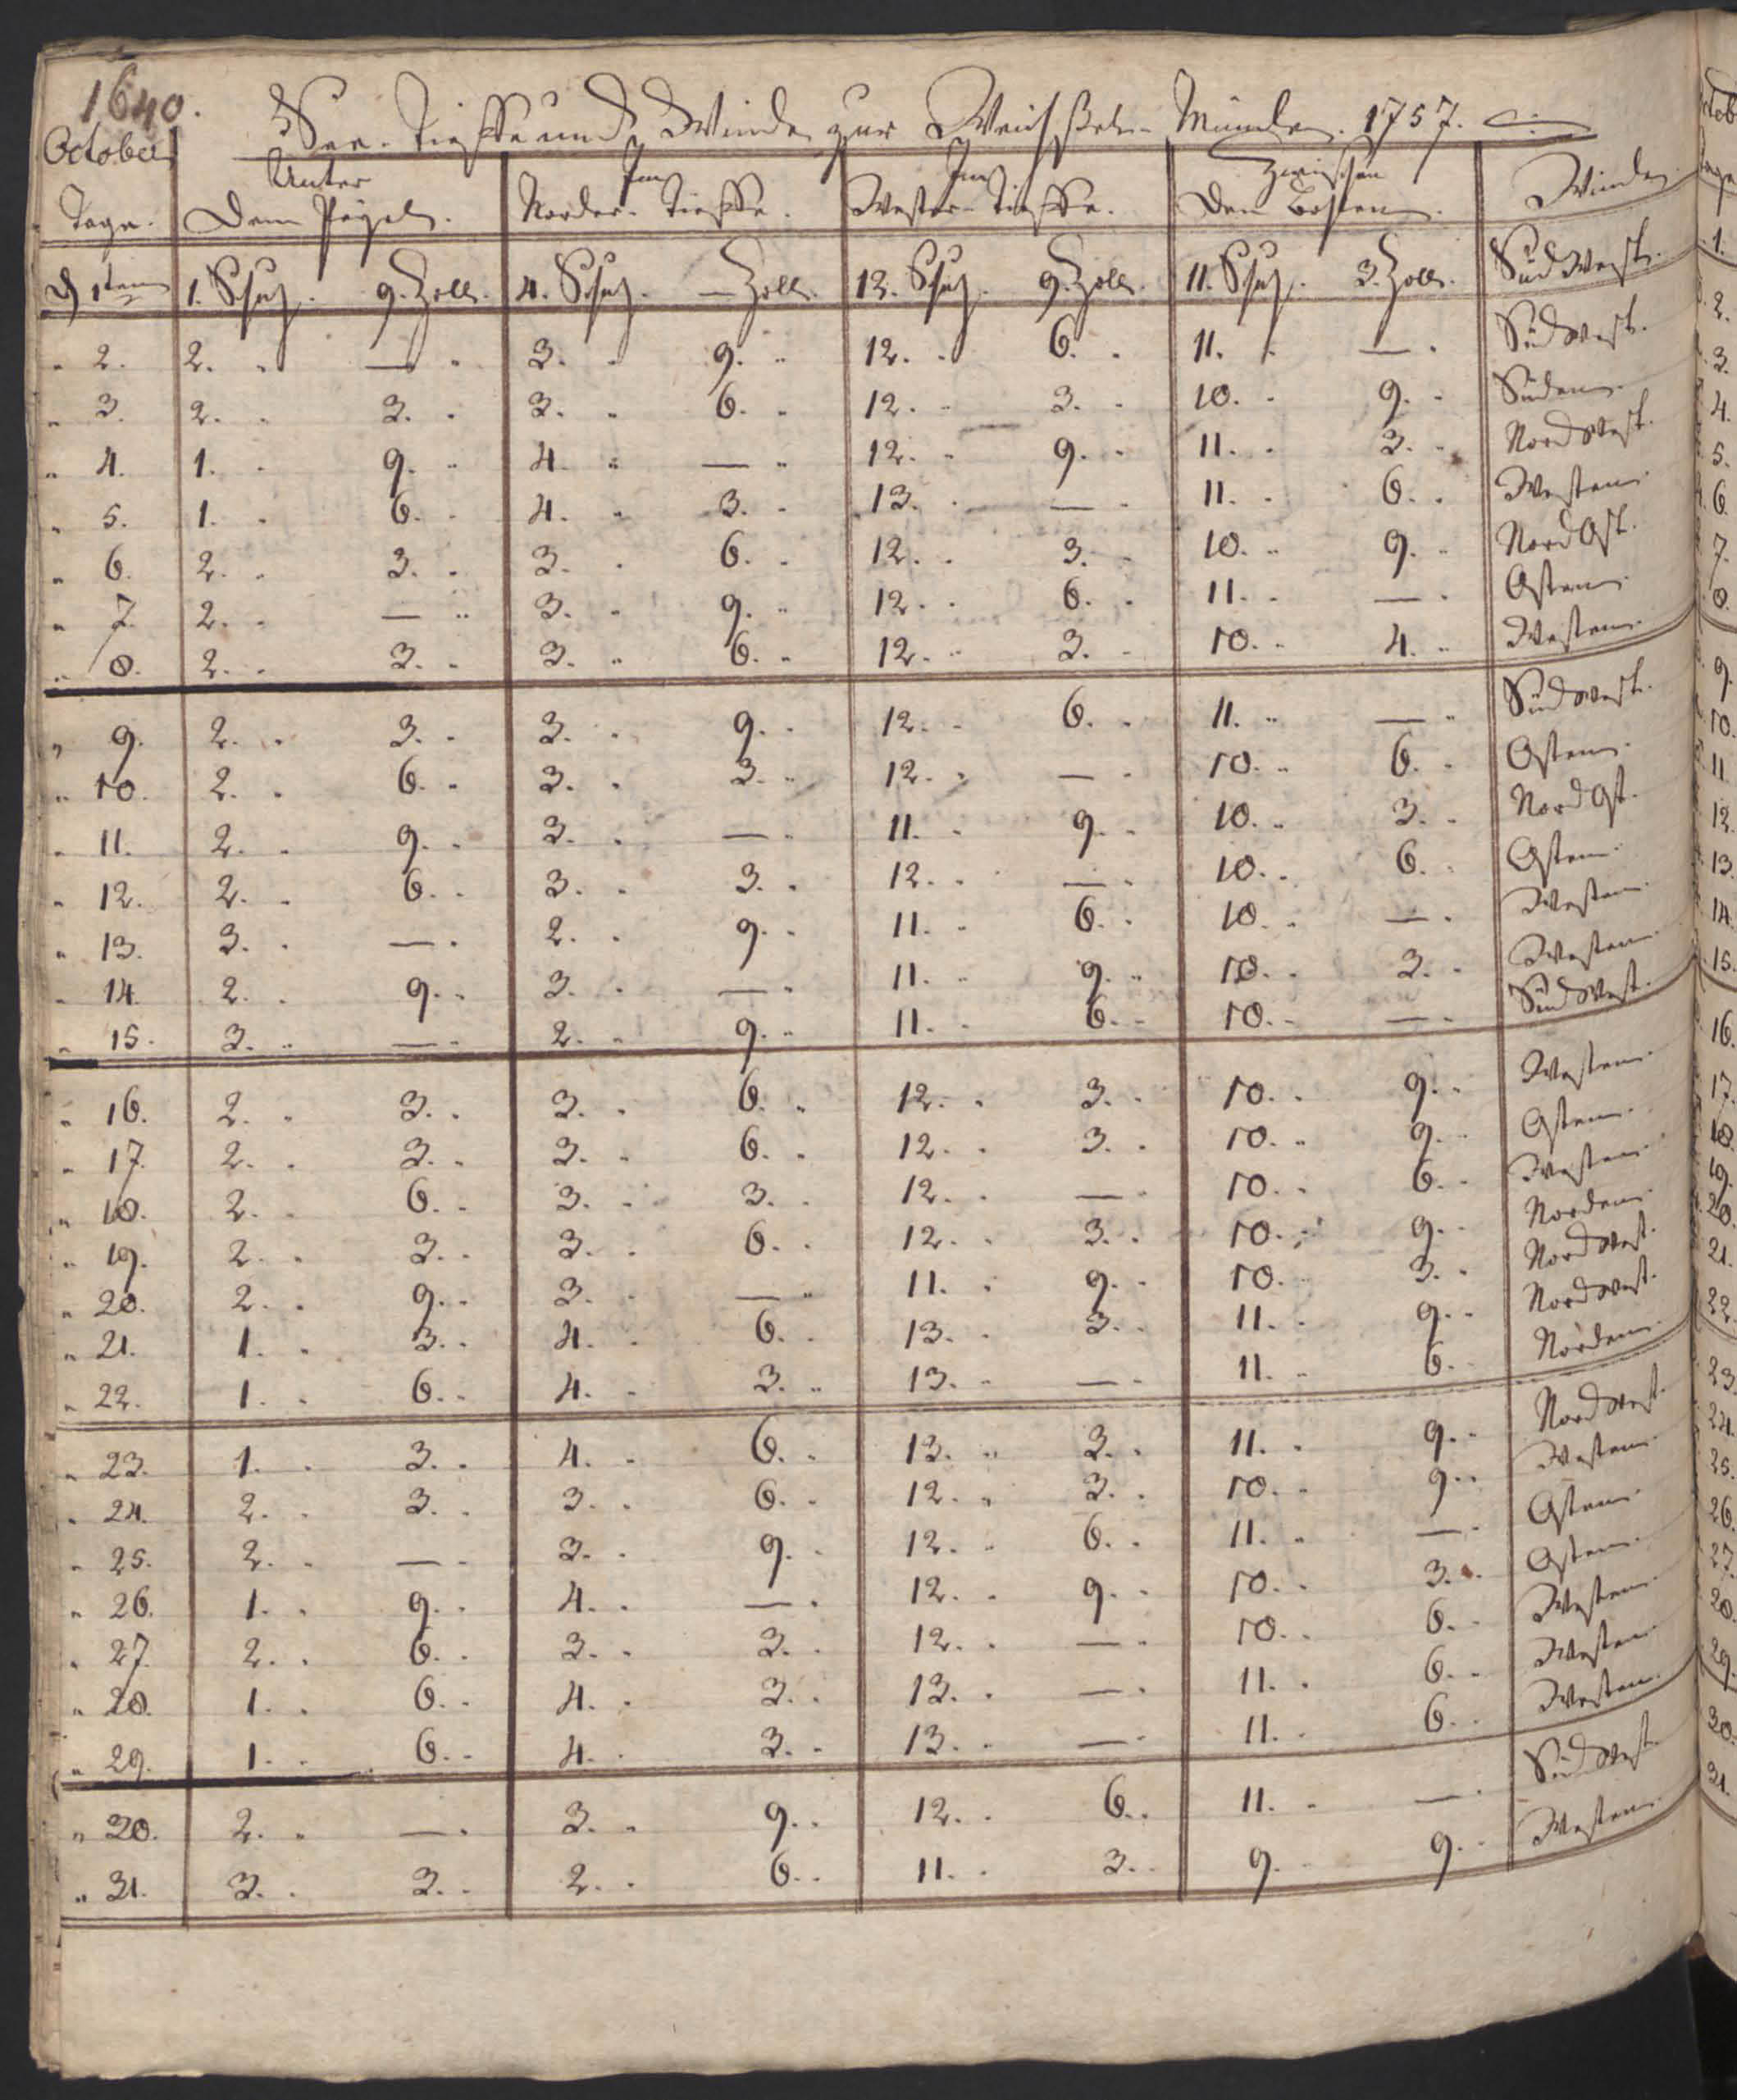 1640.
October
See-Tieffe und Winde zur Weichsel-Münde. 1757.
Tage. Unter Dem Pegel. Im Norder-Tieffe. Im Wester-Tieffe. Zwischen Den Kosten. Winde.
d 1ten 1. Schuh. 9. Zoll. 4. Schuh. — Zoll. 12. Schuh. 9. Zoll. 11. Schuh. 3. Zoll. Südwest.
" 2. 2. " — " 3. " 9. " 12. " 6. " 11. " — " Südwest.
" 3. 2. " 3. " 3. " 6. " 12. " 3. " 10. " 9. " Süden.
" 4. 1. " 9. " 4. " — " 12. " 9. " 11. " 3. " Nordwest.
" 5. 1. " 6. " 4. " 3. " 13. " — " 11. " 6. " Westen.
" 6. 2. " 3. " 3. " 6. " 12. " 3. " 10. " 9. " NordOst.
" 7. 2. " — " 3. " 9. " 12. " 6. " 11. " — " Osten.
" 8. 2. " 3. " 3. " 6. " 12. " 3. " 10. " 4. " Westen.
" 9. 2. " 3. " 3. " 9. " 12. " 6. " 11. " — " Südwest.
" 10. 2. " 6. " 3. " 3. " 12. " — " 10. " 6. " Osten.
" 11. 2. " 9. " 3. " — " 11. " 9. " 10. " 3. " NordOst.
" 12. 2. " 6. " 3. " 3. " 12. " — " 10. " 6. " Osten.
" 13. 3. " — " 2. " 9. " 11. " 6. " 10. " — " Westen.
" 14. 2. " 9. " 3. " — " 11. " 9. " 10. " 3. " Westen.
" 15. 3. " — " 2. " 9. " 11. " 6. " 10. " — " Südwest.
" 16. 2. " 3. " 3. " 6. " 12. " 3. " 10. " 9. " Westen.
" 17. 2. " 3. " 3. " 6. " 12. " 3. " 10. " 9. " Osten.
" 18. 2. " 6. " 3. " 3. " 12. " — " 10. " 6. " Westen.
" 19. 2. " 3. " 3. " 6. " 12. " 3. " 10. " 9. " Norden.
" 20. 2. " 9. " 3. " — " 11. " 9. " 10. " 3. " Nordwest.
" 21. 1. " 3. " 4. " 6. " 13. " 3. " 11. " 9. " Nordwest.
" 22. 1. " 6. " 4. " 3. " 13. " — " 11. " 6. " Norden.
" 23. 1. " 3. " 4. " 6. " 13. " 3. " 11. " 9. " Nordwest.
" 24. 2. " 3. " 3. " 6. " 12. " 3. " 10. " 9. " Westen.
" 25. 2. " — " 3. " 9. " 12. " 6. " 11. " — " Osten.
" 26. 1. " 9. " 4. " — " 12. " 9. " 10. " 3. " Osten.
" 27. 2. " 6. " 3. " 3. " 12. " — " 10. " 6. " Westen.
" 28. 1. " 6. " 4. " 3. " 13. " — " 11. " 6. " Westen.
" 29. 1. " 6. " 4. " 3. " 13. " — " 11. " 6. " Westen.
" 30. 2. " — " 3. " 9. " 12. " 6. " 11. " — " Südwest.
" 31. 3. " 3. " 2. " 6. " 11. " 3. " 9. " 9. " Westen.